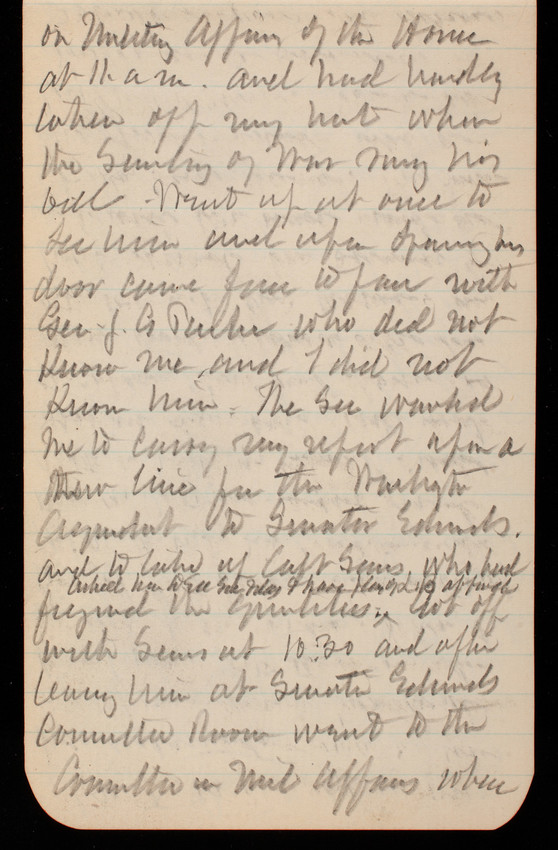 on Military Affairs of the House
at 11 a m. and had hardly
taken off my hat when
the Secretary of War rang his
bell. Went up at once to
See him and upon opening his
door came face to face with
Gen J. G Parke who did not
Know me, and I did not
Know him. The Sec wanted
me to carry my report upon a
new line for the Washington
Aqueduct to Senator Edmunds.
and to take up Capt Sears, who had
asked him to see
figured the quantities. Got off
with Sears at 10:30 and after
leaving him at Senator Edmunds
Committee Room went to the
Committee on Mil Affairs where